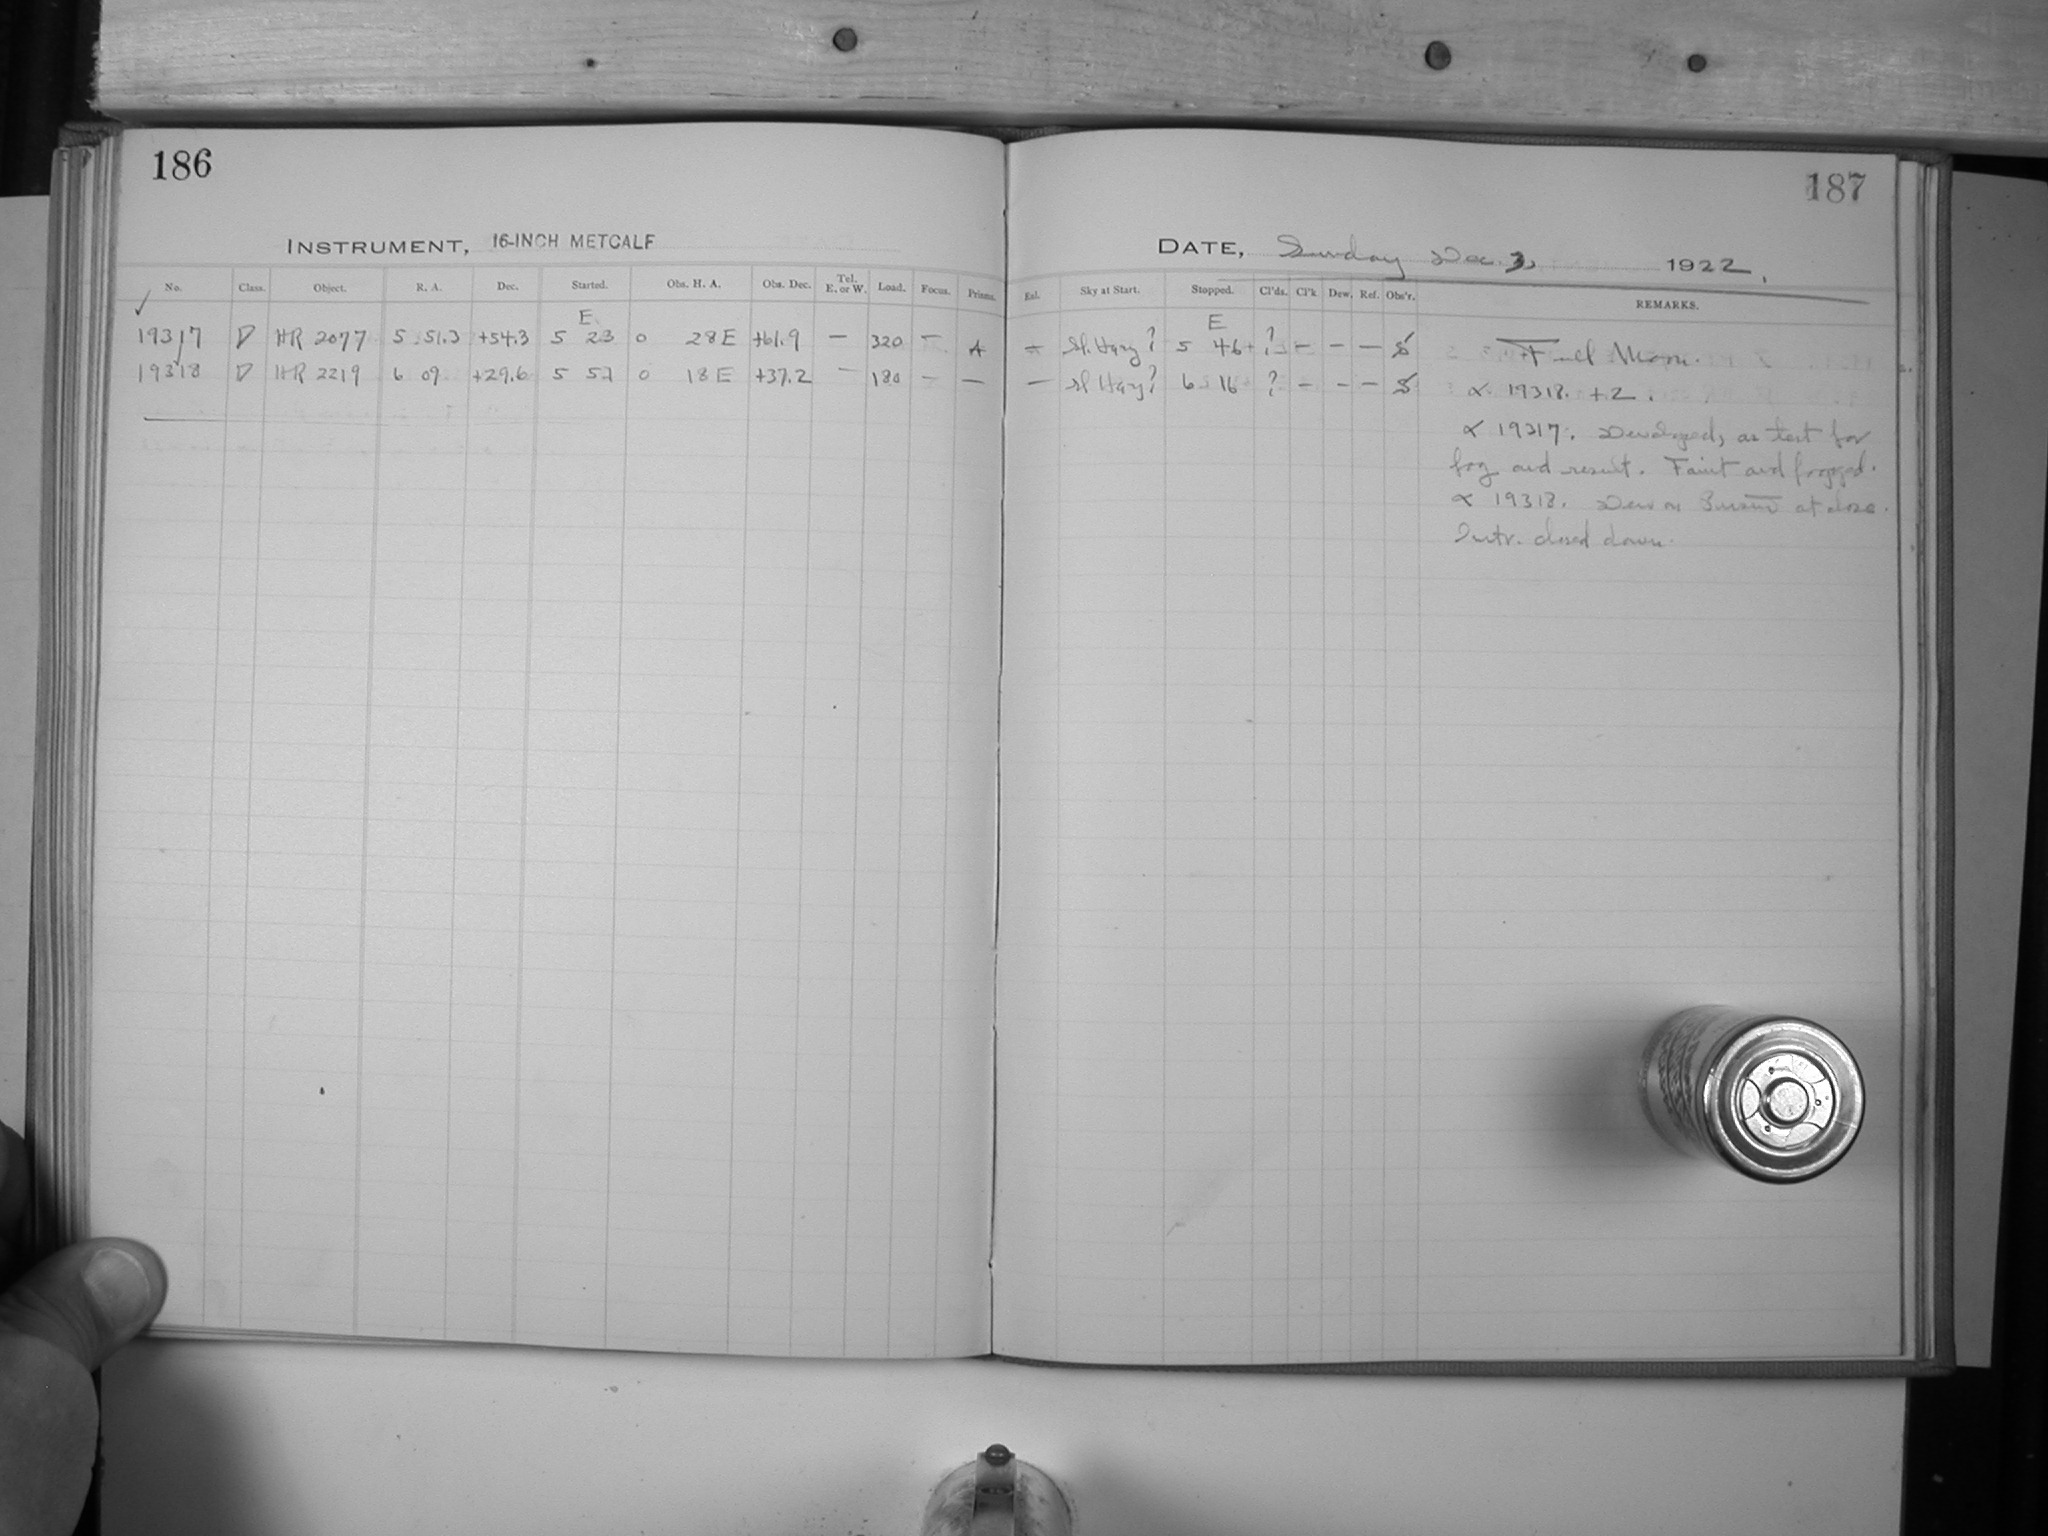 186
187
INSTRUMENT, 16-INCH METCALF
DATE, Sunday Dec. 3, 1922,
No. Class. Object. R. A. Dec. Started. Obs. H. A. Obs. Dec. Tel. E. or W. Load. Focus. Prisms. Exl. Sky at Start. Stopped. Cl'ds. Cl'k Dew. Ref. Obs'r. REMARKS.
E E
19317 D HR 2077 5 51.3 +54.3 5 23 0 28 E +61.9 — 320 — A — Sl. Hazy? 5 46+ ? — — — S Full Moon.
19318 D HR 2219 6 09 +29.6 5 57 0 18 E +37.2 — 180 — — — Sl Hazy? 6 16 ? — — — S α 19318. +2.
α 19317. Developed, as test for
fog and result. Faint and fogged.
α 19318. Dew on Prism at close.
Instr. closed down.